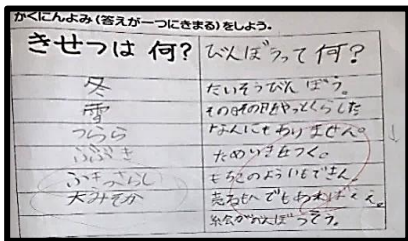 かくにんよみ(答えが一つにきまる)をしよう。
きせつは 何?
びんぼうって何?
冬
だいそうびんぼう。
雪
その日その日をやっとくらした
つらら
なんにもありません。
ふぶき
ためいきをつく。
ふきっさらし
もちこのよういもできん。
大みそか
売るもんでもあればくえ。